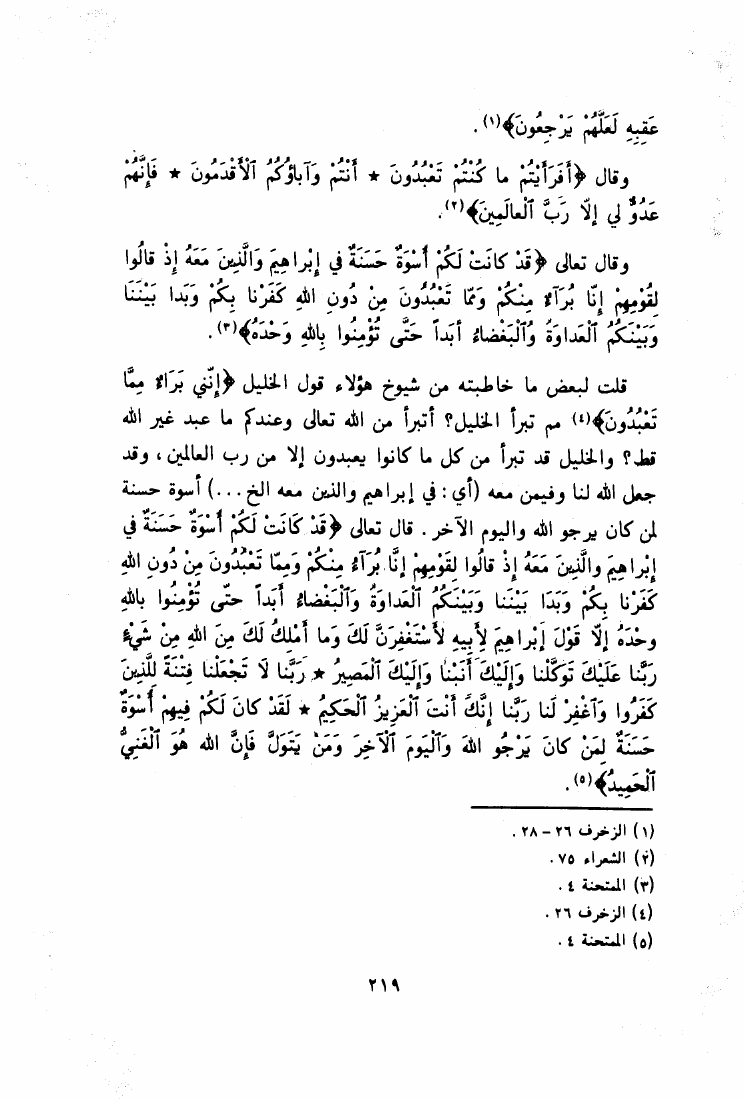 عَقِبِهِ لَعَلَّهُمْ يَرْجِعُونَ﴾(١) .
وقال ﴿أَفَرَأَيْتُمْ ما كُنْتُمْ تَعْبُدُونَ * أَنْتُمْ وَآباؤُكُمُ ٱلْأَقْدَمُونَ * فَإِنَّهُمْ
عَدُوٌّ لي إِلّا رَبَّ ٱلْعالَمِينَ﴾(٢).
وقال تعالى ﴿قَدْ كانَتْ لَكُمْ أُسْوَةٌ حَسَنَةٌ في إِبْراهِيمَ وَالَّذِينَ مَعَهُ إِذْ قالُوا
لِقَوْمِهِمْ إِنّا بُرَآءُ مِنْكُمْ وَمّا تَعْبُدُونَ مِنْ دُونِ اللهِ كَفَرْنا بِكُمْ وَبَدا بَيْنَنا
وَبَيْنَكُمُ ٱلْعَداوَةُ وَٱلْبَغْضاءُ أَبَداً حَتَّى تُؤْمِنُوا بِاللهِ وَحْدَهُ﴾(٣) .
قلت لبعض ما خاطبته من شيوخ هؤلاء قول الخليل ﴿إِنَّني بَرَاءٌ مِمَّا
تَعْبُدُونَ﴾(٤) مم تبرأ الخليل؟ أتبرأ من الله تعالى وعندكم ما عبد غير الله
قط؟ والخليل قد تبرأ من كل ما كانوا يعبدون إلا من رب العالمين ، وقد
جعل الله لنا وفيمن معه (أي : في إبراهيم والذين معه الخ ...) أسوة حسنة
لمن كان يرجو الله واليوم الآخر . قال تعالى ﴿قَدْ كَانَتْ لَكُمْ أُسْوَةٌ حَسَنَةٌ في
إِبْراهِيمَ والَّذِينَ مَعَهُ إِذْ قالُوا لِقَوْمِهِمْ إِنَّا بُرَآءُ مِنْكُمْ وَمِمّا تَعْبُدُونَ مِنْ دُونِ اللهِ
كَفَرْنا بِكُمْ وَبَدَا بَيْنَنا وَبَيْنَكُمُ ٱلْعَداوَةُ وَٱلْبَغْضاءُ أَبَداً حتّى تُؤْمِنُوا باللهِ
وحْدَهُ إِلّا قَوْلَ إِبْراهِيمَ لِأَبِيهِ لأَسْتَغْفِرَنَّ لَكَ وَما أَمْلِكُ لَكَ مِنَ اللهِ مِنْ شَيْءٍ
رَبَّنا عَلَيْكَ تَوَكَّلْنا وَإِلَيْكَ أَنَبْنا وَإِلَيْكَ ٱلْمَصِيرُ * رَبَّنا لَا تَجْعَلْنا فِتْنَةً لِلَّذِينَ
كَفَرُوا وَٱغْفِرْ لَنا رَبَّنا إِنَّكَ أَنْتَ ٱلْعَزِيزُ ٱلْحَكِيمُ * لَقَدْ كانَ لَكُمْ فِيهِمْ أُسْوَةٌ
حَسَنَةٌ لِمَنْ كانَ يَرْجُو اللهَ وَٱلْيَومَ ٱلْآخِرَ وَمَنْ يَتَوَلَّ فَإِنَّ الله هُوَ ٱلْغَنِيُّ
ٱلْحَمِيدُ﴾(٥) .
(١) الزخرف ٢٦ – ٢٨ .
(٢) الشعراء ٧٥ .
(٣) الممتحنة ٤ .
(٤) الزخرف ٢٦ .
(٥) الممتحنة ٤ .
٢١٩